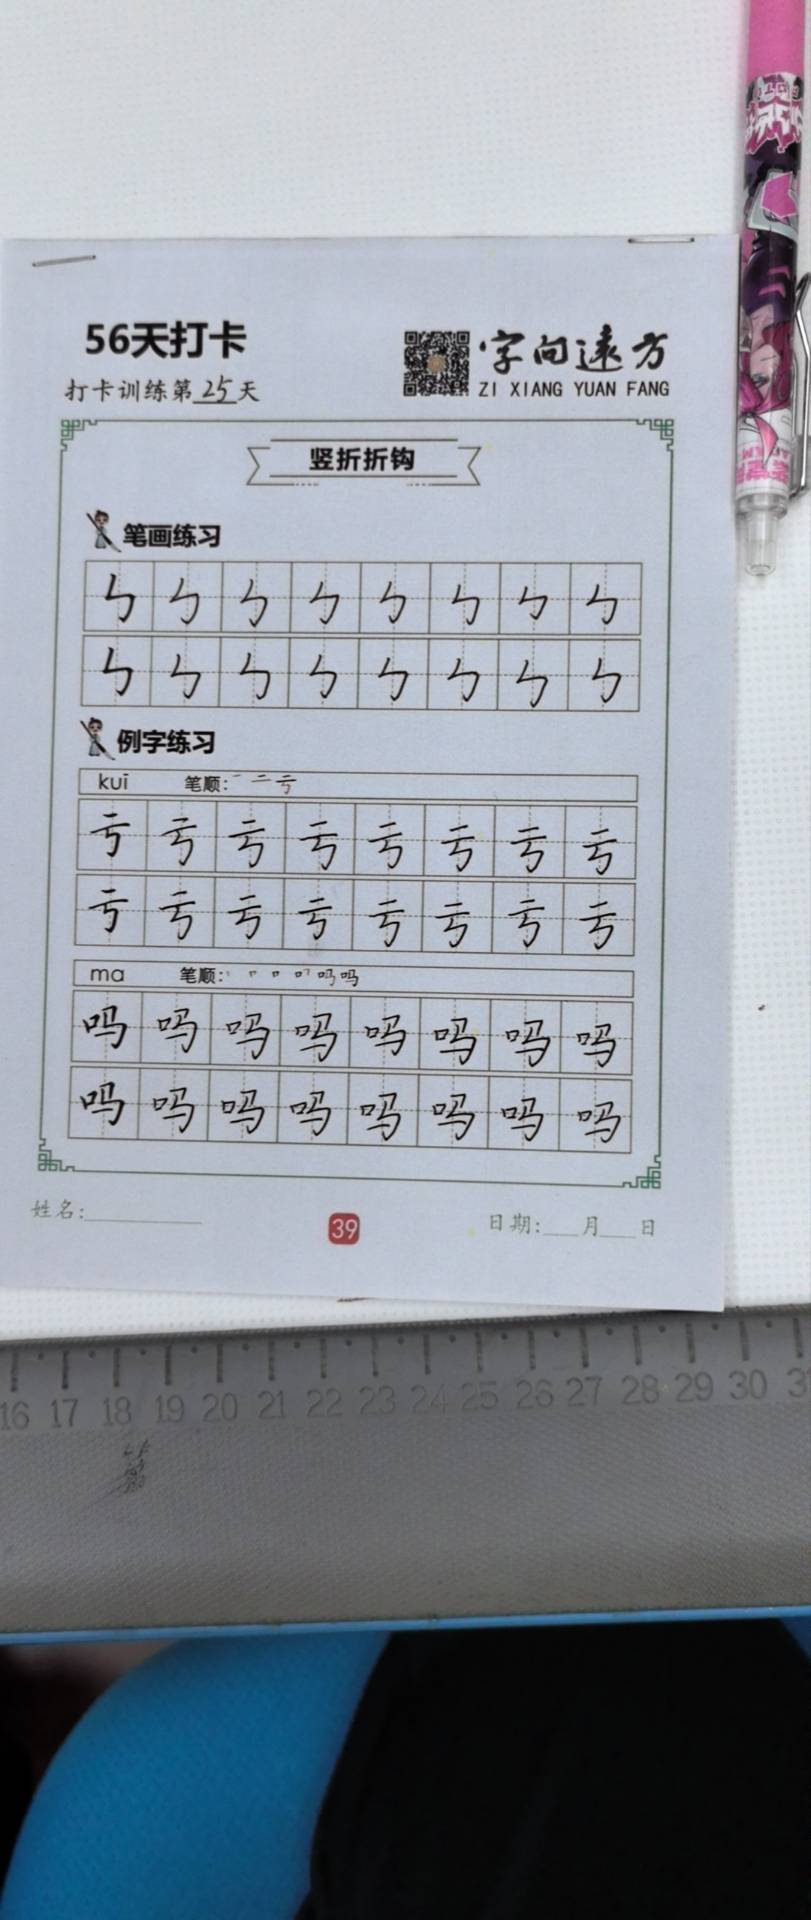 56天打卡
打卡训练第25天
字向远方
ZI XIANG YUAN FANG
竖折折钩
笔画练习
ㄣ ㄣ ㄣ ㄣ ㄣ ㄣ ㄣ ㄣ
ㄣ ㄣ ㄣ ㄣ ㄣ ㄣ ㄣ ㄣ
例字练习
kuī 笔顺: 一 二 亏
亏 亏 亏 亏 亏 亏 亏 亏
亏 亏 亏 亏 亏 亏 亏 亏
ma 笔顺:
吗 吗 吗 吗 吗 吗 吗 吗
吗 吗 吗 吗 吗 吗 吗 吗
姓名:
39
日期: 月 日
16 17 18 19 20 21 22 23 24 25 26 27 28 29 30